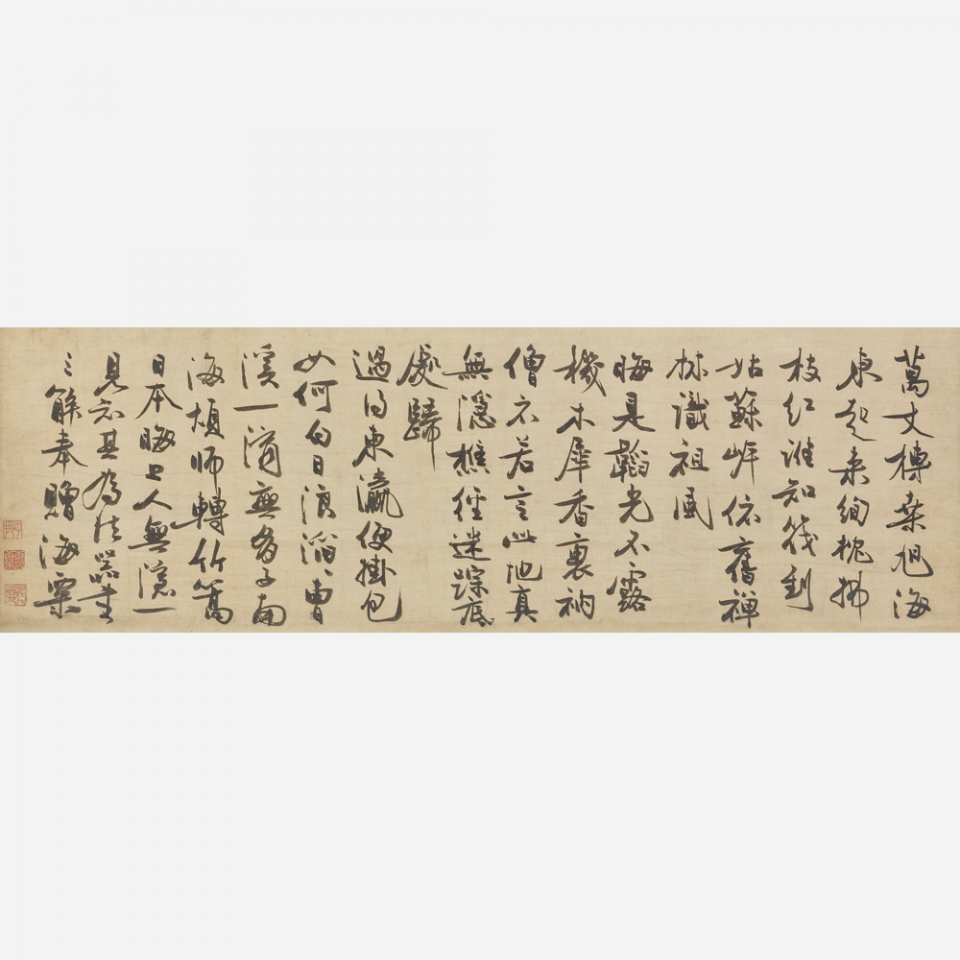 萬丈榑桒旭海
東起来絢枕拂
枝紅誰知筏到
姑蘇岸依舊禪
林識祖風
晦是韜光不露
機木犀香裏衲
僧衣若言此地真
無隱樵徑迷踪底
處歸
過得東瀛便掛包
如何白日浪滔〻曹
溪一滴無多子南
海煩師轉竹篙
日本晦上人無隱一
見知其為法器書
三解奉贈海粟